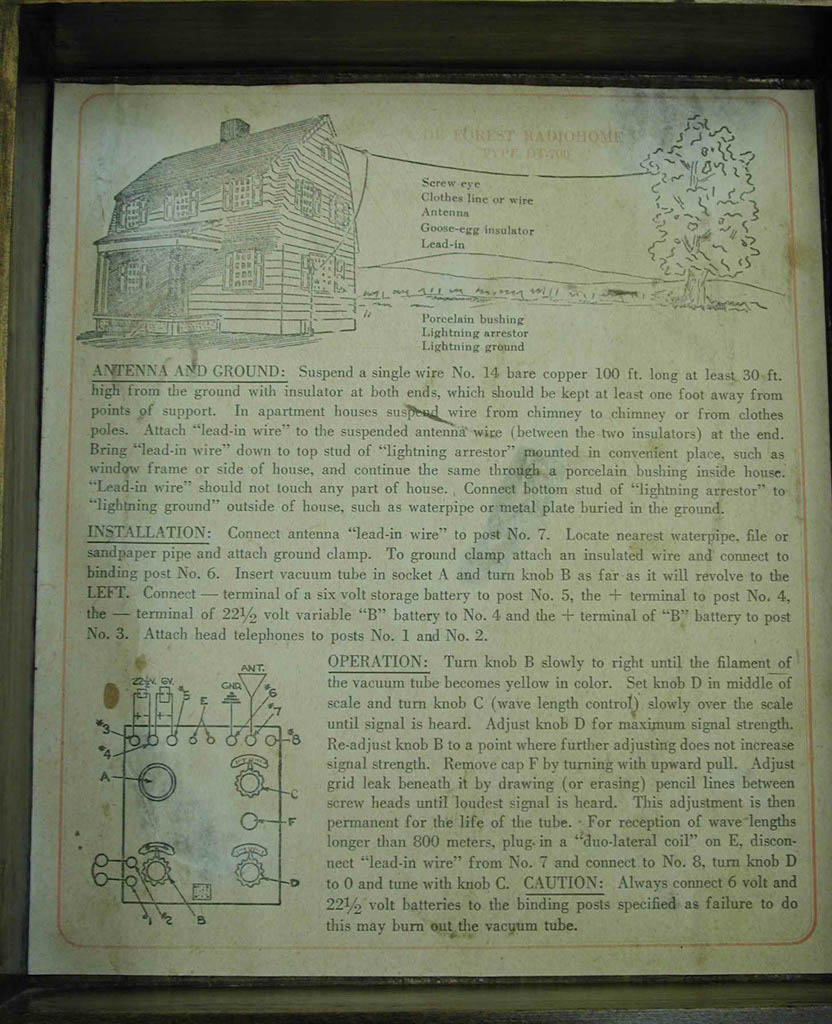 DE FOREST RADIOHOME
TYPE DT-700
Screw eye
Clothes line or wire
Antenna
Goose-egg insulator
Lead-in
Porcelain bushing
Lightning arrestor
Lightning ground
ANTENNA AND GROUND: Suspend a single wire No. 14 bare copper 100 ft. long at least 30 ft.
high from the ground with insulator at both ends, which should be kept at least one foot away from
points of support. In apartment houses suspend wire from chimney to chimney or from clothes
poles. Attach "lead-in wire" to the suspended antenna wire (between the two insulators) at the end.
Bring "lead-in wire" down to top stud of "lightning arrestor" mounted in convenient place, such as
window frame or side of house, and continue the same through a porcelain bushing inside house.
"Lead-in wire" should not touch any part of house. Connect bottom stud of "lightning arrestor" to
"lightning ground" outside of house, such as waterpipe or metal plate buried in the ground.
INSTALLATION: Connect antenna "lead-in wire" to post No. 7. Locate nearest waterpipe, file or
sandpaper pipe and attach ground clamp. To ground clamp attach an insulated wire and connect to
binding post No. 6. Insert vacuum tube in socket A and turn knob B as far as it will revolve to the
LEFT. Connect — terminal of a six volt storage battery to post No. 5, the + terminal to post No. 4,
the — terminal of 22½ volt variable "B" battery to No. 4 and the + terminal of "B" battery to post
No. 3. Attach head telephones to posts No. 1 and No. 2.
OPERATION: Turn knob B slowly to right until the filament of
the vacuum tube becomes yellow in color. Set knob D in middle of
scale and turn knob C (wave length control) slowly over the scale
until signal is heard. Adjust knob D for maximum signal strength.
Re-adjust knob B to a point where further adjusting does not increase
signal strength. Remove cap F by turning with upward pull. Adjust
grid leak beneath it by drawing (or erasing) pencil lines between
screw heads until loudest signal is heard. This adjustment is then
permanent for the life of the tube. For reception of wave lengths
longer than 800 meters, plug in a "duo-lateral coil" on E, discon-
nect "lead-in wire" from No. 7 and connect to No. 8, turn knob D
to 0 and tune with knob C. CAUTION: Always connect 6 volt and
22½ volt batteries to the binding posts specified as failure to do
this may burn out the vacuum tube.
ANT.
22½V. 6V.
GND.
#5
E
#6
#7
#3
#4
#8
A
C
F
D
#1
#2
B